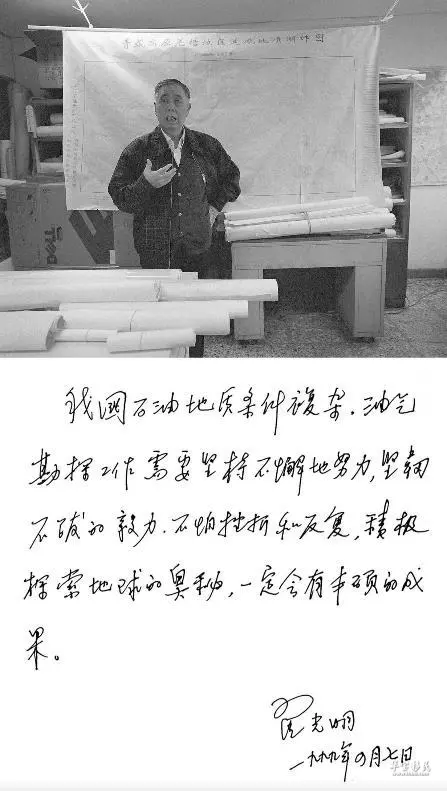 我国石油地质条件複杂，油气
勘探工作需要坚持不懈地努力，坚韧
不拔的毅力，不怕挫折和反复，積极
探索地球的奥秘，一定会有丰硕的成
果。
翟光明
一九九九年四月七日
DELL